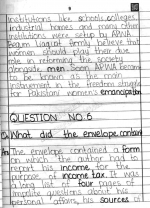 Institutions like schools, colleges,
industrial homes and many other
institutions were setup by APWA.
Begum Liaquat firmly believe that
women should play their due
role in reforming the society
alongside men. Soon APWA became
to be known as the main
instrument in the freedom struggle
for Pakistani women's emancipation
QUESTION NO.6
What did the envelope contain
The envelope contained a form
on which the author had to
report his income for the
purpose of income tax. It was
a long list of four pages of
impolite questions about his
personal affairs, his sources of